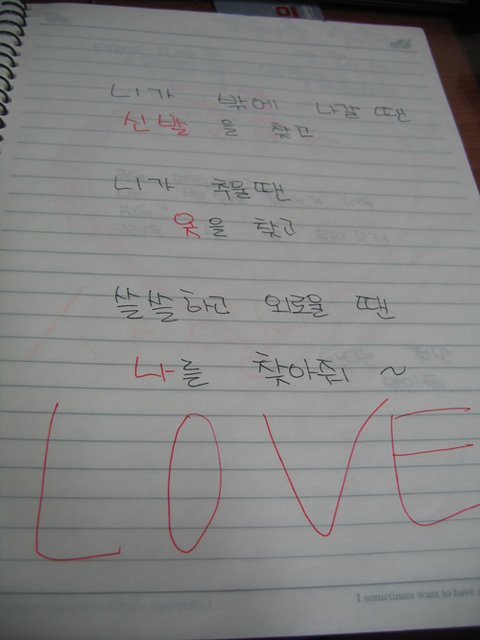 니가 밖에 나갈 땐
신발을 찾고
니가 추울땐
옷을 찾고
쓸쓸하고 외로울 땐
나를 찾아줘 ~
LOVE
I sometimes want to have a